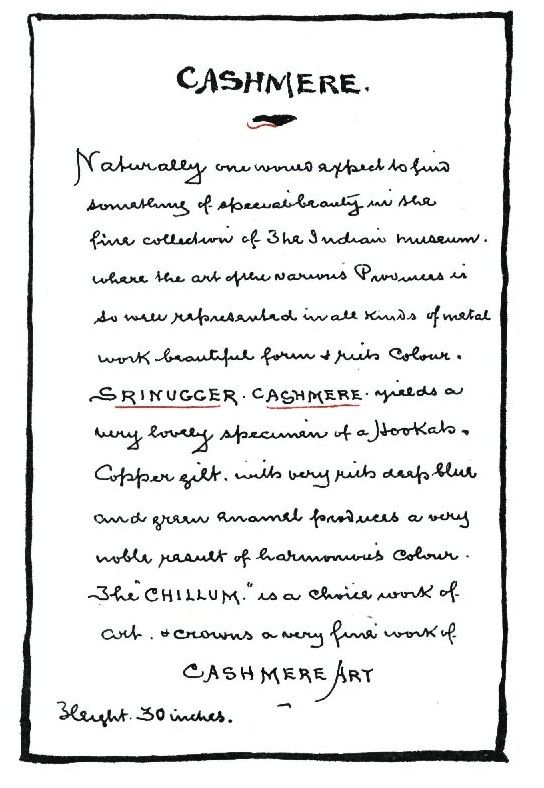 CASHMERE.
Naturally one would expect to find
something of special beauty in the
fine collection of The Indian Museum.
where the art of the various Provinces is
so well represented in all kinds of metal
work beautiful form & rich Colour.
SRINUGGER. CASHMERE. yields a
very lovely specimen of a Hookah.
Copper gilt. with very rich deep blue
and green enamel produces a very
noble result of harmonious Colour.
The "CHILLUM." is a choice work of
art. & crowns a very fine work of
CASHMERE ART
Height. 30 inches.